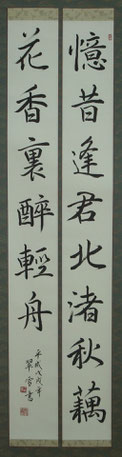 憶昔逢君北渚秋藕
花香裏醉輕舟
平成戊戌年
翠雪書